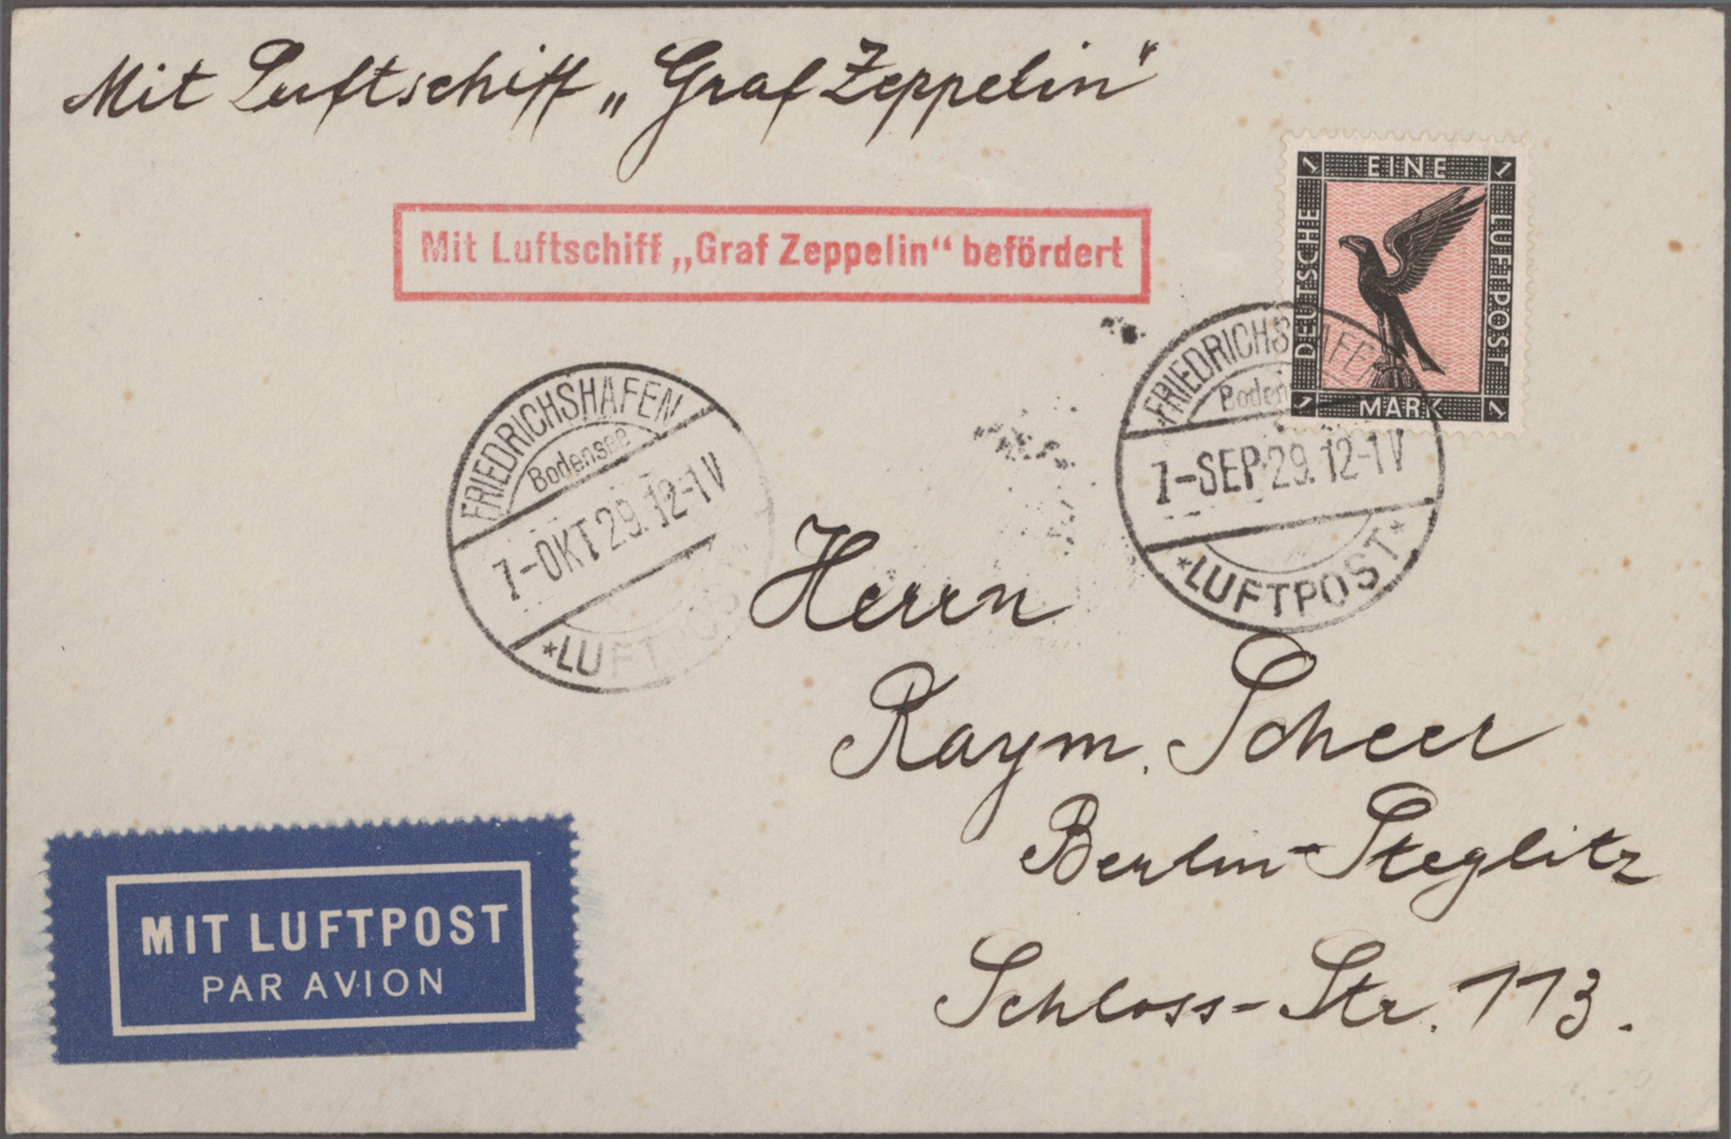 Mit Luftschiff „Graf Zeppelin“
Mit Luftschiff „Graf Zeppelin“ befördert
1 EINE 1
DEUTSCHE
LUFTPOST
1 MARK 1
FRIEDRICHSHAFEN
Bodensee
1-SEP 29. 12-1V
*LUFTPOST*
FRIEDRICHSHAFEN
Bodensee
1-OKT 29. 12-1V
*LUFTPOST
Herrn
Raym. Scheer
Berlin-Steglitz
Schloss-Str. 113.
MIT LUFTPOST
PAR AVION